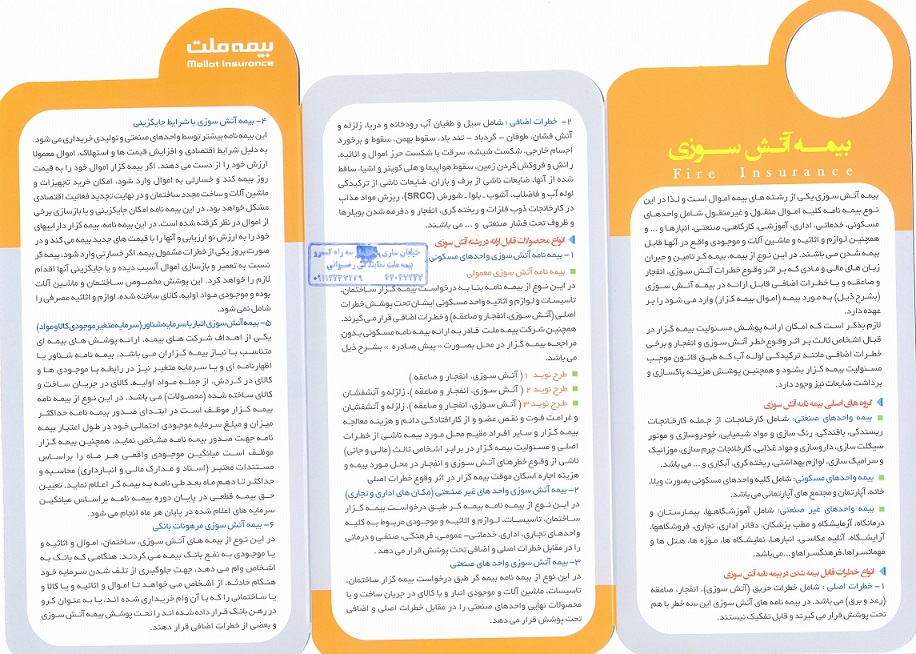 بیمه آتش سوزی
Fire Insurance
بیمه آتش سوزی یکی از رشته های بیمه اموال است و لذا در این
نوع بیمه نامه کلیه اموال منقول و غیرمنقول شامل واحدهای
مسکونی، خدماتی، اداری، آموزشی، کارگاهی، صنعتی، انبارها و ... و
همچنین لوازم و اثاثیه و ماشین آلات و موجودی واقع در آنها قابل
بیمه شدن می باشند. در این نوع از بیمه، بیمه گر تامین و جبران
زیان های مالی و مادی که بر اثر وقوع خطرات آتش سوزی، انفجار
و صاعقه و یا خطرات اضافی قابل ارائه در بیمه آتش سوزی
(بشرح ذیل) به مورد بیمه (اموال بیمه گزار) وارد می شود را بر
عهده دارد.
لازم بذکر است که امکان ارائه پوشش مسئولیت بیمه گزار در
قبال اشخاص ثالث بر اثر وقوع خطر آتش سوزی و انفجار و برخی
خطرات اضافی مانند ترکیدگی لوله آب که طبق قانون موجب
مسئولیت بیمه گزار بشود و همچنین پوشش هزینه پاکسازی و
برداشت ضایعات نیز وجود دارد.
گروه های اصلی بیمه نامه آتش سوزی
بیمه واحدهای صنعتی: شامل کارخانجات از جمله کارخانجات
ریسندگی، بافندگی، رنگ سازی و مواد شیمیایی، خودروسازی و موتور
سیکلت سازی، داروسازی و مواد غذایی، کارخانجات چرم سازی، موزائیک
و سرامیک سازی، لوازم بهداشتی، ریخته گری، آبکاری و ... می باشد.
بیمه واحدهای مسکونی: شامل کلیه واحدهای مسکونی بصورت ویلا،
خانه، آپارتمان و مجتمع های آپارتمانی می باشد.
بیمه واحدهای غیر صنعتی: شامل آموزشگاهها، بیمارستان و
درمانگاه، آزمایشگاه و مطب پزشکان، دفاتر اداری، تجاری، فروشگاهها،
آرایشگاه، آتلیه عکاسی، انبارها، نمایشگاه ها، موزه ها، هتل ها و
مهمانسراها، فرهنگسراها و ... می باشد.
انواع خطرات قابل بیمه شدن در بیمه نامه آتش سوزی
۱- خطرات اصلی : شامل خطرات حریق (آتش سوزی)، انفجار، صاعقه
(رعد و برق) می باشد. در بیمه نامه های آتش سوزی این سه خطر با هم
تحت پوشش قرار می گیرند و قابل تفکیک نیستند.
۲- خطرات اضافی : شامل سیل و طغیان آب رودخانه و دریا، زلزله و
آتش فشان، طوفان - گردباد - تند باد، سقوط بهمن، سقوط و برخورد
اجسام خارجی، شکست شیشه، سرقت با شکست حرز اموال و اثاثیه،
رانش و فروکش کردن زمین، سقوط هواپیما و هلی کوپتر و اشیاء ساقط
شده از آنها، ضایعات ناشی از برف و باران، ضایعات ناشی از ترکیدگی
لوله آب و فاضلاب، آشوب - بلوا - شورش (SRCC)، ریزش مواد مذاب
در کارخانجات ذوب فلزات و ریخته گری، انفجار و دفرمه شدن بویلرها
و ظروف تحت فشار صنعتی و ... می باشند.
انواع محصولات قابل ارائه در رشته آتش سوزی
۱- بیمه نامه آتش سوزی واحدهای مسکونی
خیابان ساری سه راه کسرو
بیمه ملت نمایندگی رضوانی
بیمه نامه آتش سوزی معمولی
در این نوع از بیمه نامه بنا به درخواست بیمه گزار ساختمان،
تأسیسات و لوازم و اثاثیه واحد مسکونی ایشان تحت پوشش خطرات
اصلی (آتش سوزی، انفجار و صاعقه) و خطرات اضافی قرار می گیرند.
همچنین شرکت بیمه ملت قادر به ارائه بیمه نامه مسکونی بدون
مراجعه بیمه گزار در محل بصورت « پیش صادره » بشرح ذیل
می باشد.
طرح نوید ۱ ( آتش سوزی، انفجار و صاعقه )
طرح نوید ۲ ( آتش سوزی، انفجار و صاعقه )، زلزله و آتشفشان
طرح نوید ۳ ( آتش سوزی، انفجار و صاعقه)، زلزله و آتشفشان
و غرامت فوت و نقص عضو و از کارافتادگی دائم و هزینه معالجه
بیمه گزار و سایر افراد مقیم محل مورد بیمه ناشی از خطرات
اصلی و مسئولیت بیمه گزار در برابر اشخاص ثالث (مالی و جانی)
ناشی از وقوع خطرهای آتش سوزی و انفجار در محل مورد بیمه و
هزینه اجاره اسکان موقت بیمه گزار در اثر وقوع خطرات اصلی
۲- بیمه آتش سوزی واحد های غیر صنعتی (مکان های اداری و تجاری)
در این نوع از بیمه نامه بیمه گر طبق درخواست بیمه گزار
ساختمان، تاسیسات، لوازم و اثاثیه و موجودی مربوط به کلیه
واحدهای تجاری، اداری، خدماتی- عمومی، فرهنگی، صنفی و درمانی
را در مقابل خطرات اصلی و اضافی تحت پوشش قرار می دهد.
۳- بیمه آتش سوزی واحد های صنعتی
در این نوع از بیمه نامه بیمه گر طبق درخواست بیمه گزار ساختمان،
تاسیسات، ماشین آلات و موجودی انبار و یا کالای در جریان ساخت و یا
محصولات نهایی واحدهای صنعتی را در مقابل خطرات اصلی و اضافی
تحت پوشش قرار می دهد.
بیمه ملت
Mellat Insurance
۴- بیمه آتش سوزی با شرایط جایگزینی
این بیمه نامه بیشتر توسط واحدهای صنعتی و تولیدی خریداری می شود.
به دلیل شرایط اقتصادی و افزایش قیمت ها و استهلاک، اموال معمولا
ارزش خود را از دست می دهند. اگر بیمه گزار اموال خود را به قیمت
روز بیمه کند و خسارتی به اموال وارد شود، امکان خرید تجهیزات و
ماشین آلات و ساخت مجدد ساختمان و در نهایت تجدید فعالیت اقتصادی
مشکل خواهد بود. در این بیمه نامه امکان جایگزینی و یا بازسازی برخی
از اموال در نظر گرفته شده است. در این بیمه نامه، بیمه گزار داراییهای
خود را به ارزش نو ارزیابی و آنها را با قیمت های جدید بیمه می کند و در
صورت بروز یکی از خطرات مشمول بیمه، اگر خسارتی وارد شود، بیمه گر
نسبت به تعمیر و بازسازی اموال آسیب دیده و یا جایگزینی آنها اقدام
لازم را خواهد کرد. این پوشش مخصوص ساختمان و ماشین آلات
بوده و موجودی مواد اولیه، کالای ساخته شده، لوازم و اثاثیه مصرفی را
شامل نمی شود.
۵- بیمه آتش سوزی انبار با سرمایه شناور (سرمایه متغیر موجودی کالا و مواد)
یکی از اهداف شرکت های بیمه، ارائه پوشش های بیمه ای
متناسب با نیاز بیمه گزاران می باشد. بیمه نامه شناور یا
اظهارنامه ای و یا سرمایه متغیر نیز در رابطه با موجودی ها و
کالای در گردش، از جمله مواد اولیه، کالای در جریان ساخت و
کالای ساخته شده (محصولات) می باشد. در این نوع از بیمه نامه
بیمه گزار موظف است در ابتدای صدور بیمه نامه حداکثر
میزان و مبلغ سرمایه موجودی احتمالی خود در طول اعتبار بیمه
نامه جهت صدور بیمه نامه مشخص نماید. همچنین بیمه گزار
موظف است میانگین موجودی واقعی هر ماه را براساس
مستندات معتبر (اسناد و مدارک مالی و انبارداری) محاسبه و
حداکثر تا دهم ماه بعد طی نامه به بیمه گر اعلام نماید. تعیین
حق بیمه قطعی در پایان دوره بیمه نامه براساس میانگین
سرمایه های اعلام شده در پایان هر ماه انجام می شود.
۶- بیمه آتش سوزی مرهونات بانکی
در این نوع از بیمه های آتش سوزی، ساختمان، اموال و اثاثیه و
یا موجودی به نفع بانک بیمه می گردند. هنگامی که بانک به
اشخاص وام می دهد، جهت جلوگیری از تلف شدن سرمایه خود
هنگام حادثه، از اشخاص می خواهد تا اموال و اثاثیه و یا کالا و
یا ساختمانی را که با آن وام خریداری شده اند، یا به عنوان گرو
در رهن بانک قرار داده شده اند را تحت پوشش بیمه آتش سوزی
و بعضی از خطرات اضافی قرار دهند.